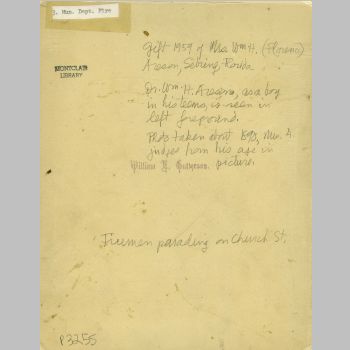 3. Mun. Dept. Fire
MONTCLAIR
LIBRARY
Gift 1959 of Mrs. Wm H. (Florence)
Areson, Sebring, Florida
Dr. Wm. H. Areson, as a boy
in his teens, is seen in
left foreground.
Photo taken about 1890, Mrs. A.
judges from his age in
picture.
Firemen parading on Church St.
P3255